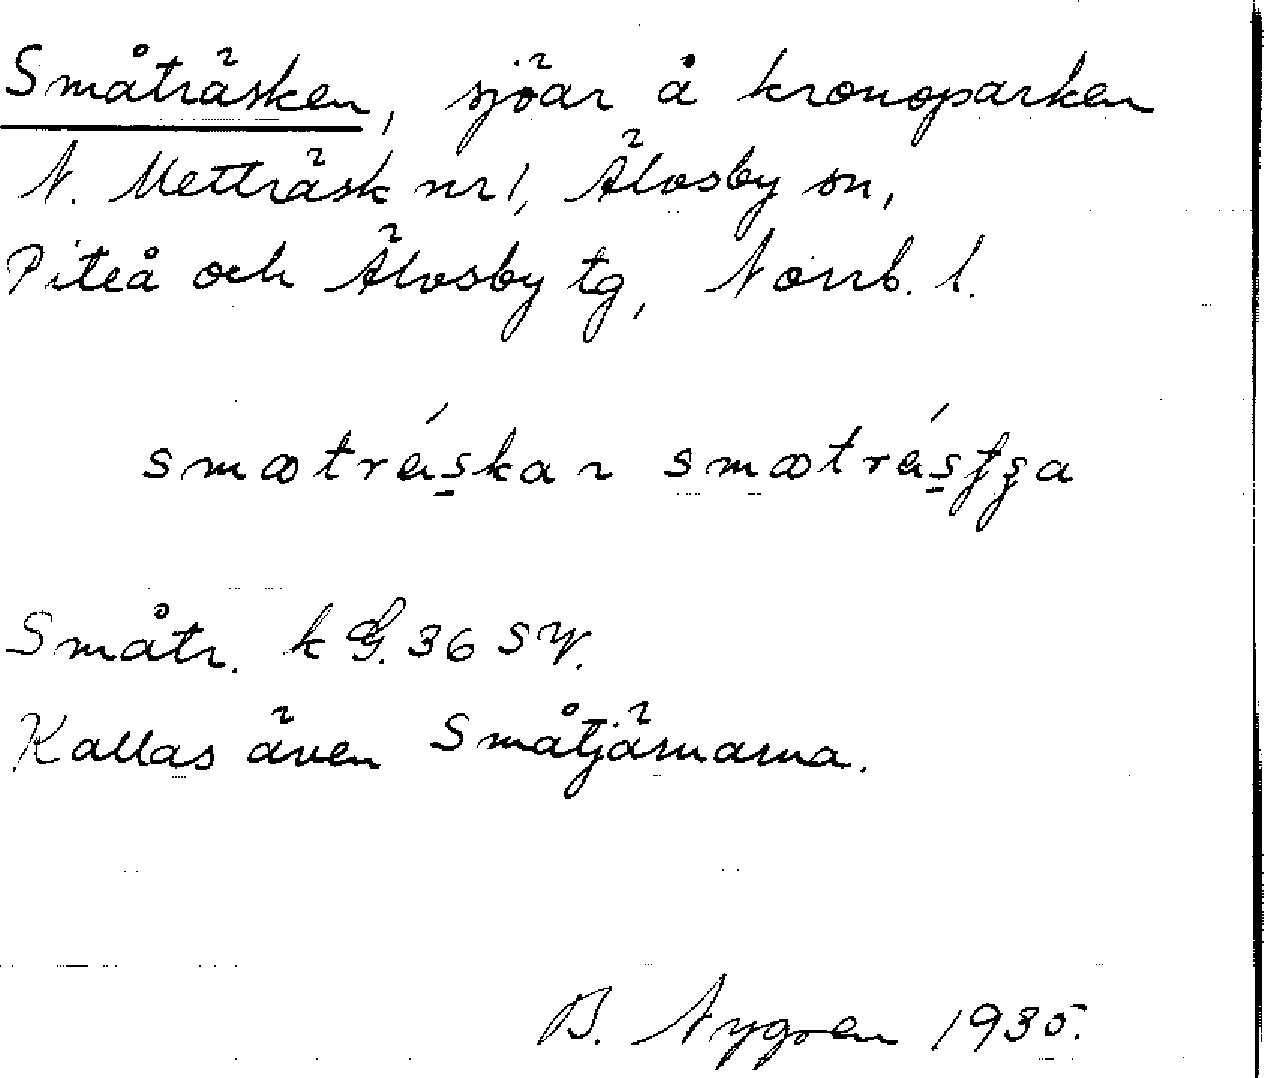 Småträsken, sjöar å kronoparken
N. Metträsk nr 1, Älvsby sn,
Piteå och Älvsby tg, Norrb. l.
smætráska ~ smætrásʃʒa
Småtr. k G. 36 SV.
Kallas även Småtjärnarna.
B. Nygren 1935.